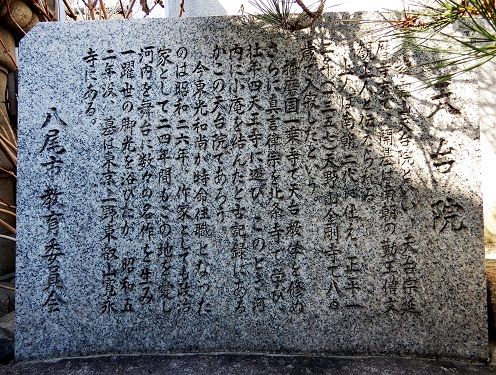 天台院
天台宗延
開基は南朝の勤王僧文
上人と伝えられる
上人は南朝二代に仕え正平一
二年(一三五七)天野山金剛寺で八
才で入寂したという
播磨国一乗寺で天台教学を修め
さらに真言律宗を北条寺で学び
壮年四天王寺に遊び このとき河
内に小庵を結んだと古記録にある
がこの天台院であろう
今東光和尚が特命住職となった
のは昭和二六年 作家としても政治
家として二四年間もこの地を愛し
河内を舞台に数々の名作を生み
一躍世の脚光を浴びたが 昭和五
二年没 墓は東京上野東叡山寛永
寺にある
八尾市教育委員会